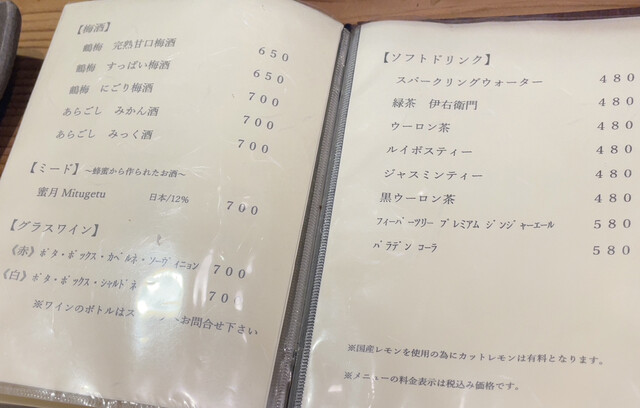 【梅酒】
鶴梅 完熟甘口梅酒 650
鶴梅 すっぱい梅酒 650
鶴梅 にごり梅酒 700
あらごし みかん酒 700
あらごし みっく酒 700
【ミード】～蜂蜜から作られたお酒～
蜜月 Mitugetu 日本/12% 700
【グラスワイン】
《赤》ﾎﾞﾀ・ﾎﾞｯｸｽ・ｶﾍﾞﾙﾈ・ｿｰｳﾞｨﾆｮﾝ 700
《白》ﾎﾞﾀ・ﾎﾞｯｸｽ・ｼｬﾙﾄﾞﾈ 70
※ワインのボトルはス お問合せ下さい
【ソフトドリンク】
スパークリングウォーター 480
緑茶 伊右衛門 480
ウーロン茶 480
ルイボスティー 480
ジャスミンティー 480
黒ウーロン茶 480
ﾌｨｰﾊﾞｰﾂﾘｰ ﾌﾟﾚﾐｱﾑ ｼﾞﾝｼﾞｬｰｴｰﾙ 580
ﾊﾞﾗﾃﾞﾝ ｺｰﾗ 580
※国産レモンを使用の為にカットレモンは有料となります。
※メニューの料金表示は税込み価格です。